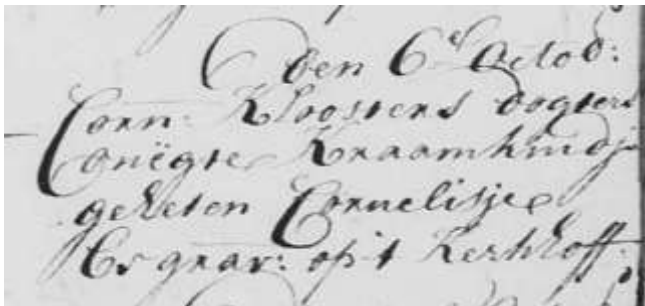 Den 6e Octob:
Corn: Kloosters dogters
onëgte Kraamkindje
geheten Cornelisje
Begrav: op't Kerkhoff.